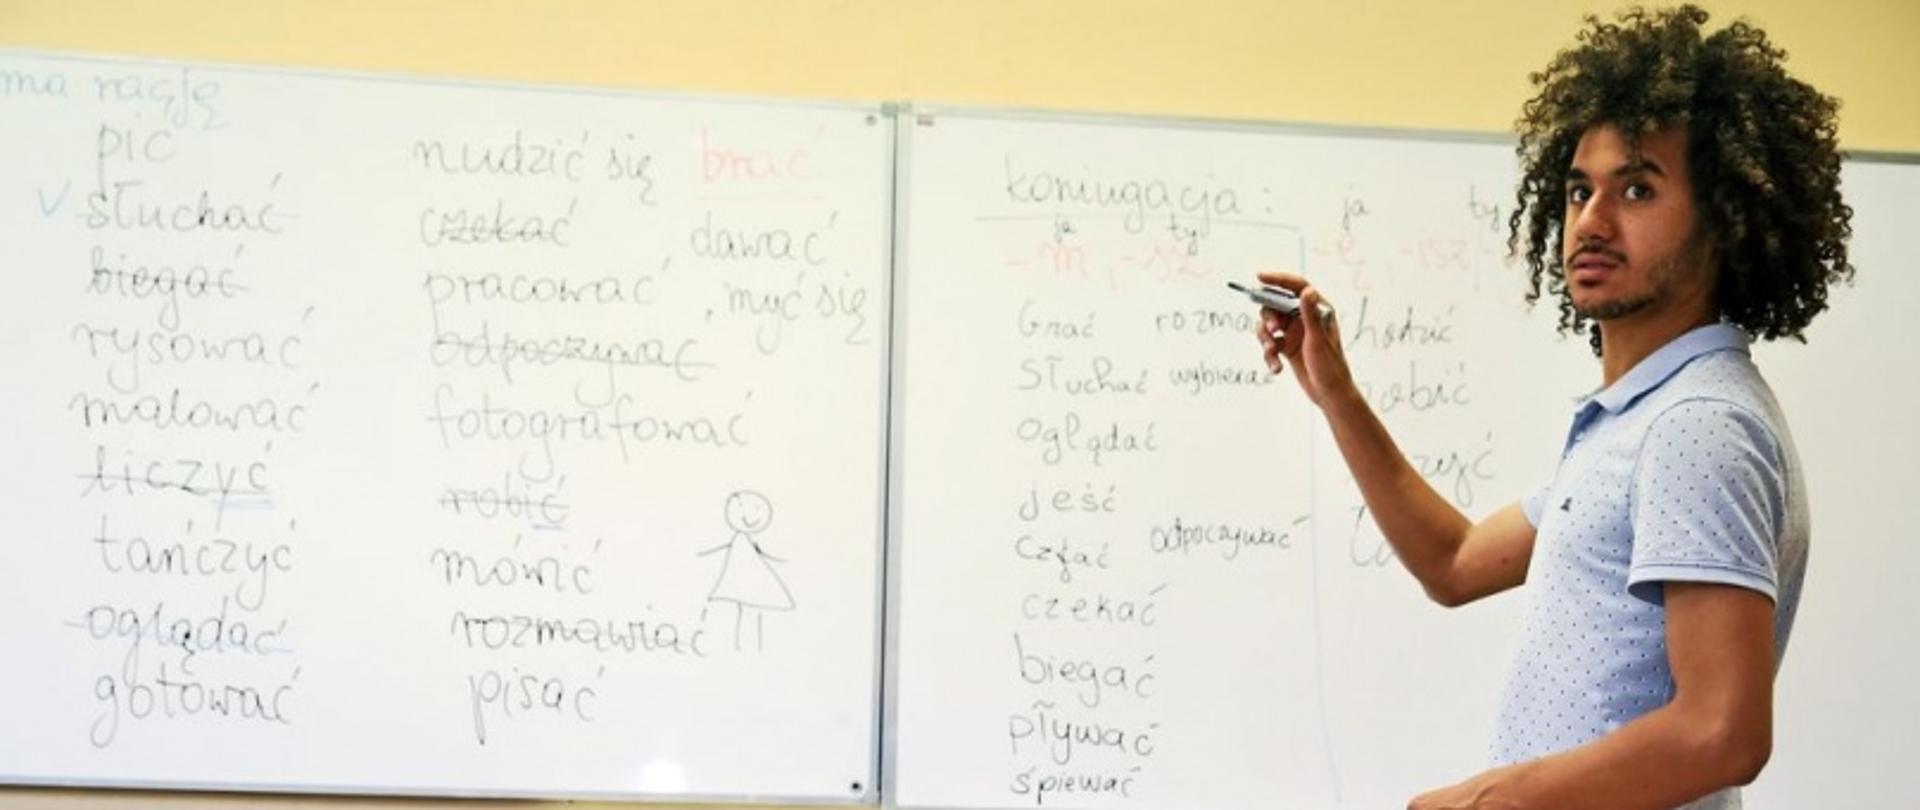 ma rację
pić
słuchać
biegać
rysować
malować
liczyć
tańczyć
oglądać
gotować
nudzić się
czekać
pracować
odpoczywać
fotografować
robić
mówić
rozmawiać
pisać
brać
dawać
, myć się
koniugacja:
ja ty
-m, -sz
Grać rozma
Słuchać wybierać
oglądać
jeść
czytać odpoczywać
czekać
biegać
pływać
śpiewać
ja ty
-ę, -isz
hodzić
obić